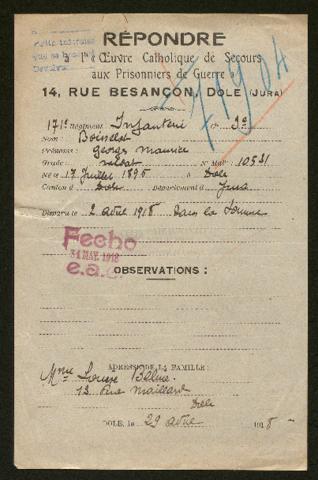 RÉPONDRE
à l'Œuvre Catholique de Secours
aux Prisonniers de Guerre
14, RUE BESANÇON, DOLE (JURA)
71904
171e Régiment Infanterie
Nom : Boisselot
Prénoms : Georges Maurice
Grade : soldat No Mle : 10531
Né le 17 Juillet 1895 à Dole
Canton d Dole Département d Jura
Disparu le 2 avril 1918 dans la Somme
Fecho
31 MAY. 1918
e.a.
OBSERVATIONS :
ADRESSE DE LA FAMILLE :
Mme Louise
13 Rue Maillard
Dole
DOLE, le 29 avril 1918